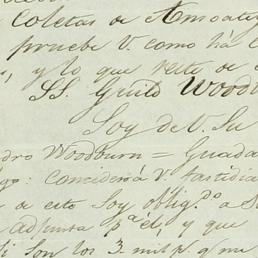 Coletas de Amoatey
pruebe V. como há
, y lo que reste de
SS. Guild Woodb
Soy de V. Su
dro Woodburn = Guada
go: concidera V. fastidia
a de esto Soy oblig.do a S
adjunta pa él, y que
si son los 3. mil p. q me